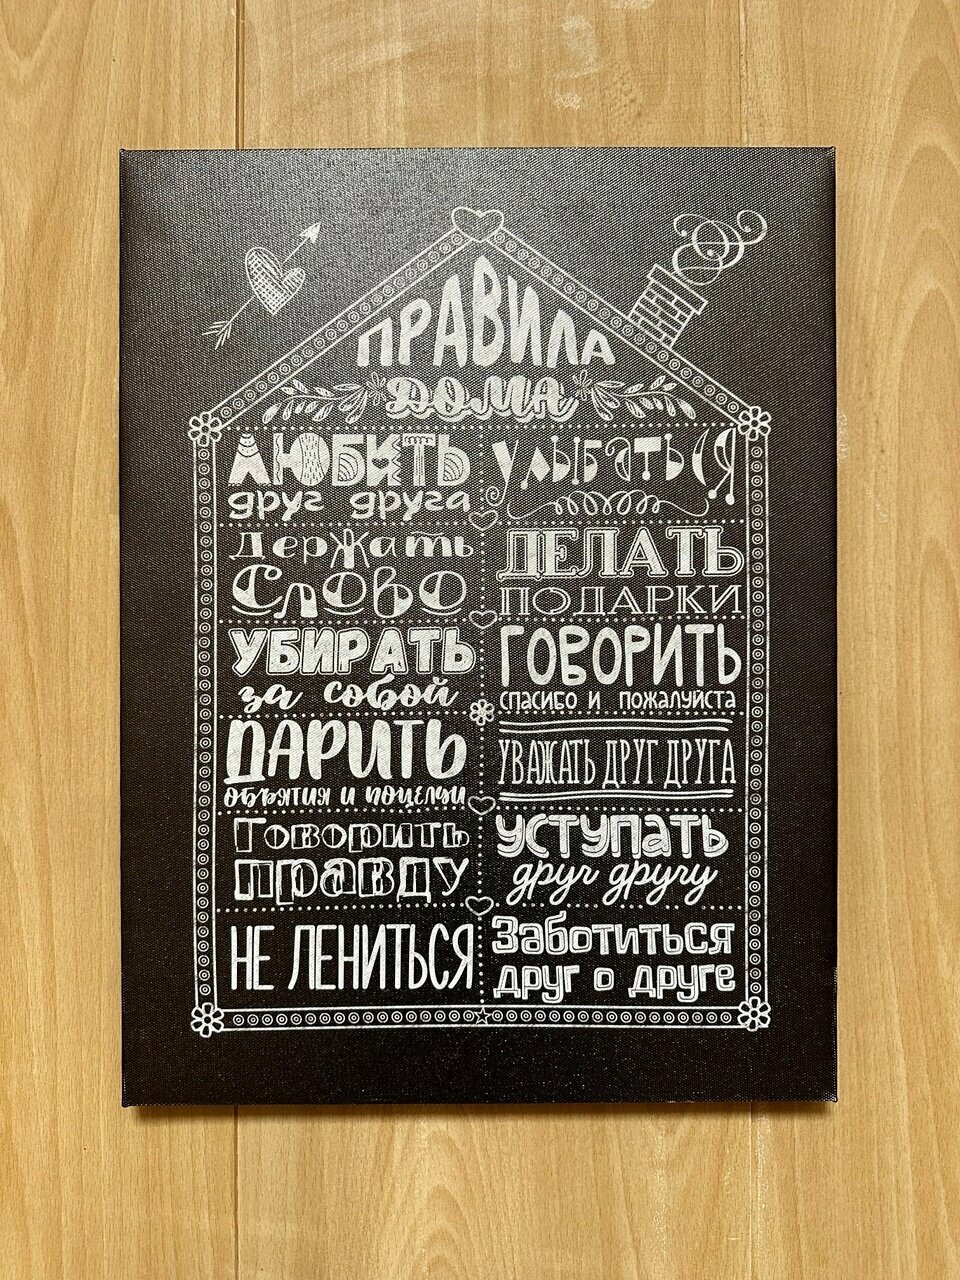 ПРАВИЛА
ДОМА
ЛЮБИТЬ
друг друга
УЛЫБАТЬСЯ
Держать
Слово
ДЕЛАТЬ
ПОДАРКИ
УБИРАТЬ
за собой
ГОВОРИТЬ
спасибо и пожалуйста
ДАРИТЬ
объятия и поцелуи
УВАЖАТЬ ДРУГ ДРУГА
Говорить
правду
УСТУПАТЬ
друг другу
НЕ ЛЕНИТЬСЯ
Заботиться
друг о друге